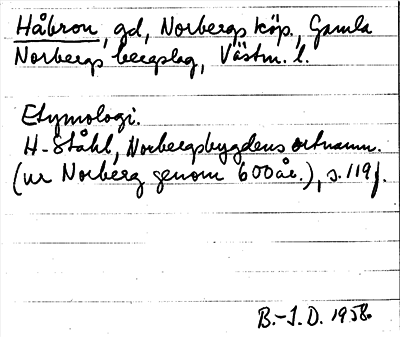 Håbron, gd, Norbergs köp., Gamla
Norbergs bergslag, Västm. l.
Etymologi.
H. Ståhl, Norbergsbygdens ortnamn.
(ur Norberg genom 600 år.), s. 119f.
B.-I. D. 1958.